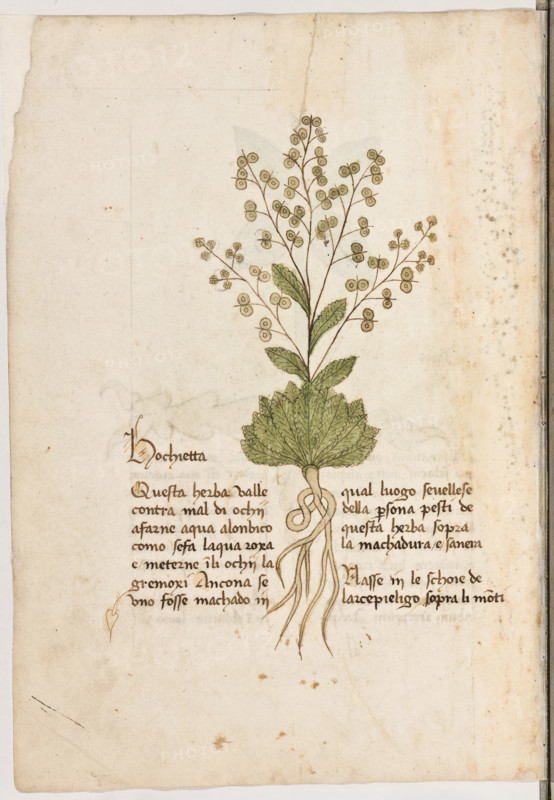 Hochietta
Questa herba valle
contra mal di ochij
afarne aqua alonbico
como sefa laqua roxa
e meterne ili ochij la
gremoxi Ancona se
vno fosse machado in
qual luogo sevellese
della psona pesti de
questa herba sopra
la machadura e sanera
Nasse in le schoie de
larcepieligo sopra li moti
PHOTO12
PHOTO12
PHOTO12
PHOTO12